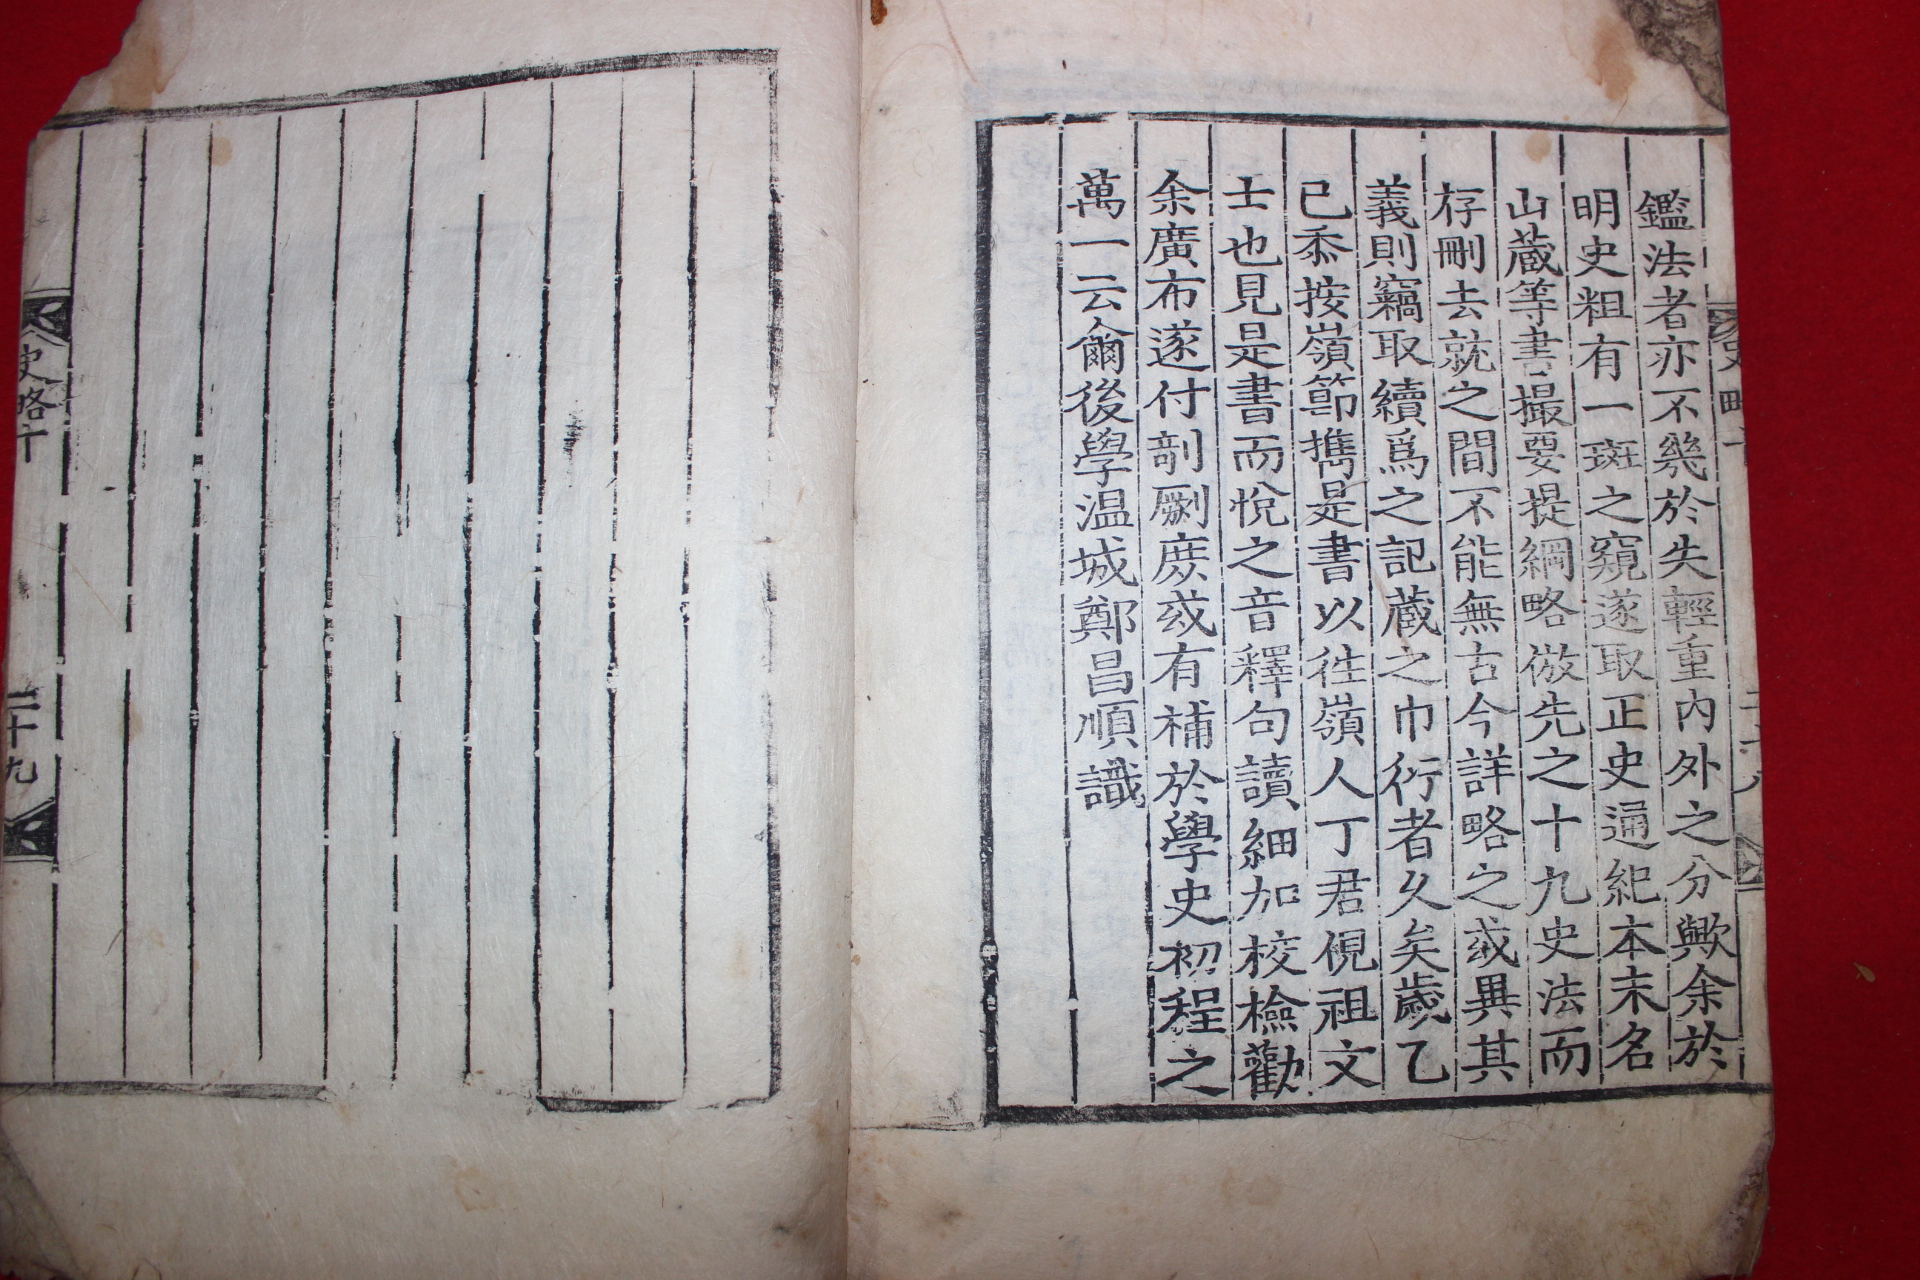 鑑法者亦不幾於失輕重內外之分歟余於
明史粗有一斑之窺遂取正史通紀本末名
山藏等書撮要提綱略倣先之十九史法而
存刪去就之間不能無古今詳略之或異其
義則竊取續爲之記藏之巾衍者久矣歲乙
已忝按嶺節携是書以徃嶺人丁君俔祖文
士也見是書而悅之音釋句讀細加校檢勸
余廣布遂付剞劂庶或有補於學史初程之
萬一云爾後學温城鄭昌順識
史略十
二十九